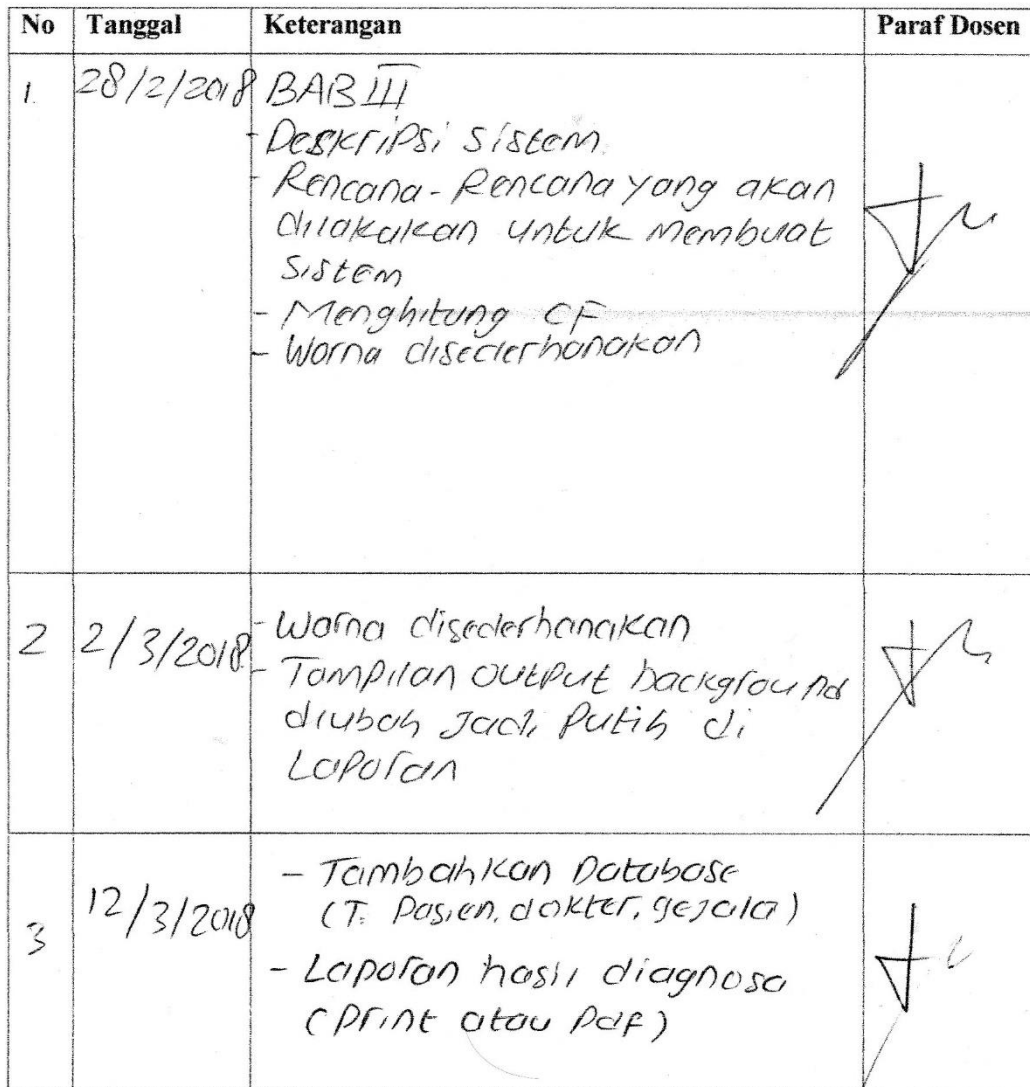 No Tanggal Keterangan Paraf Dosen
1. 28/2/2018 BAB III
- Deskripsi sistem
- Rencana-Rencana yang akan
dilakukan untuk membuat
sistem
- Menghitung CF
- Warna disederhanakan
2 2/3/2018 - Warna disederhanakan
- Tampilan output background
diubah Jadi Putih di
Laporan
3 12/3/2018 - Tambahkan Database
(T. Pasien, dokter, gejala)
- Laporan hasil diagnosa
(Print atau Pdf)